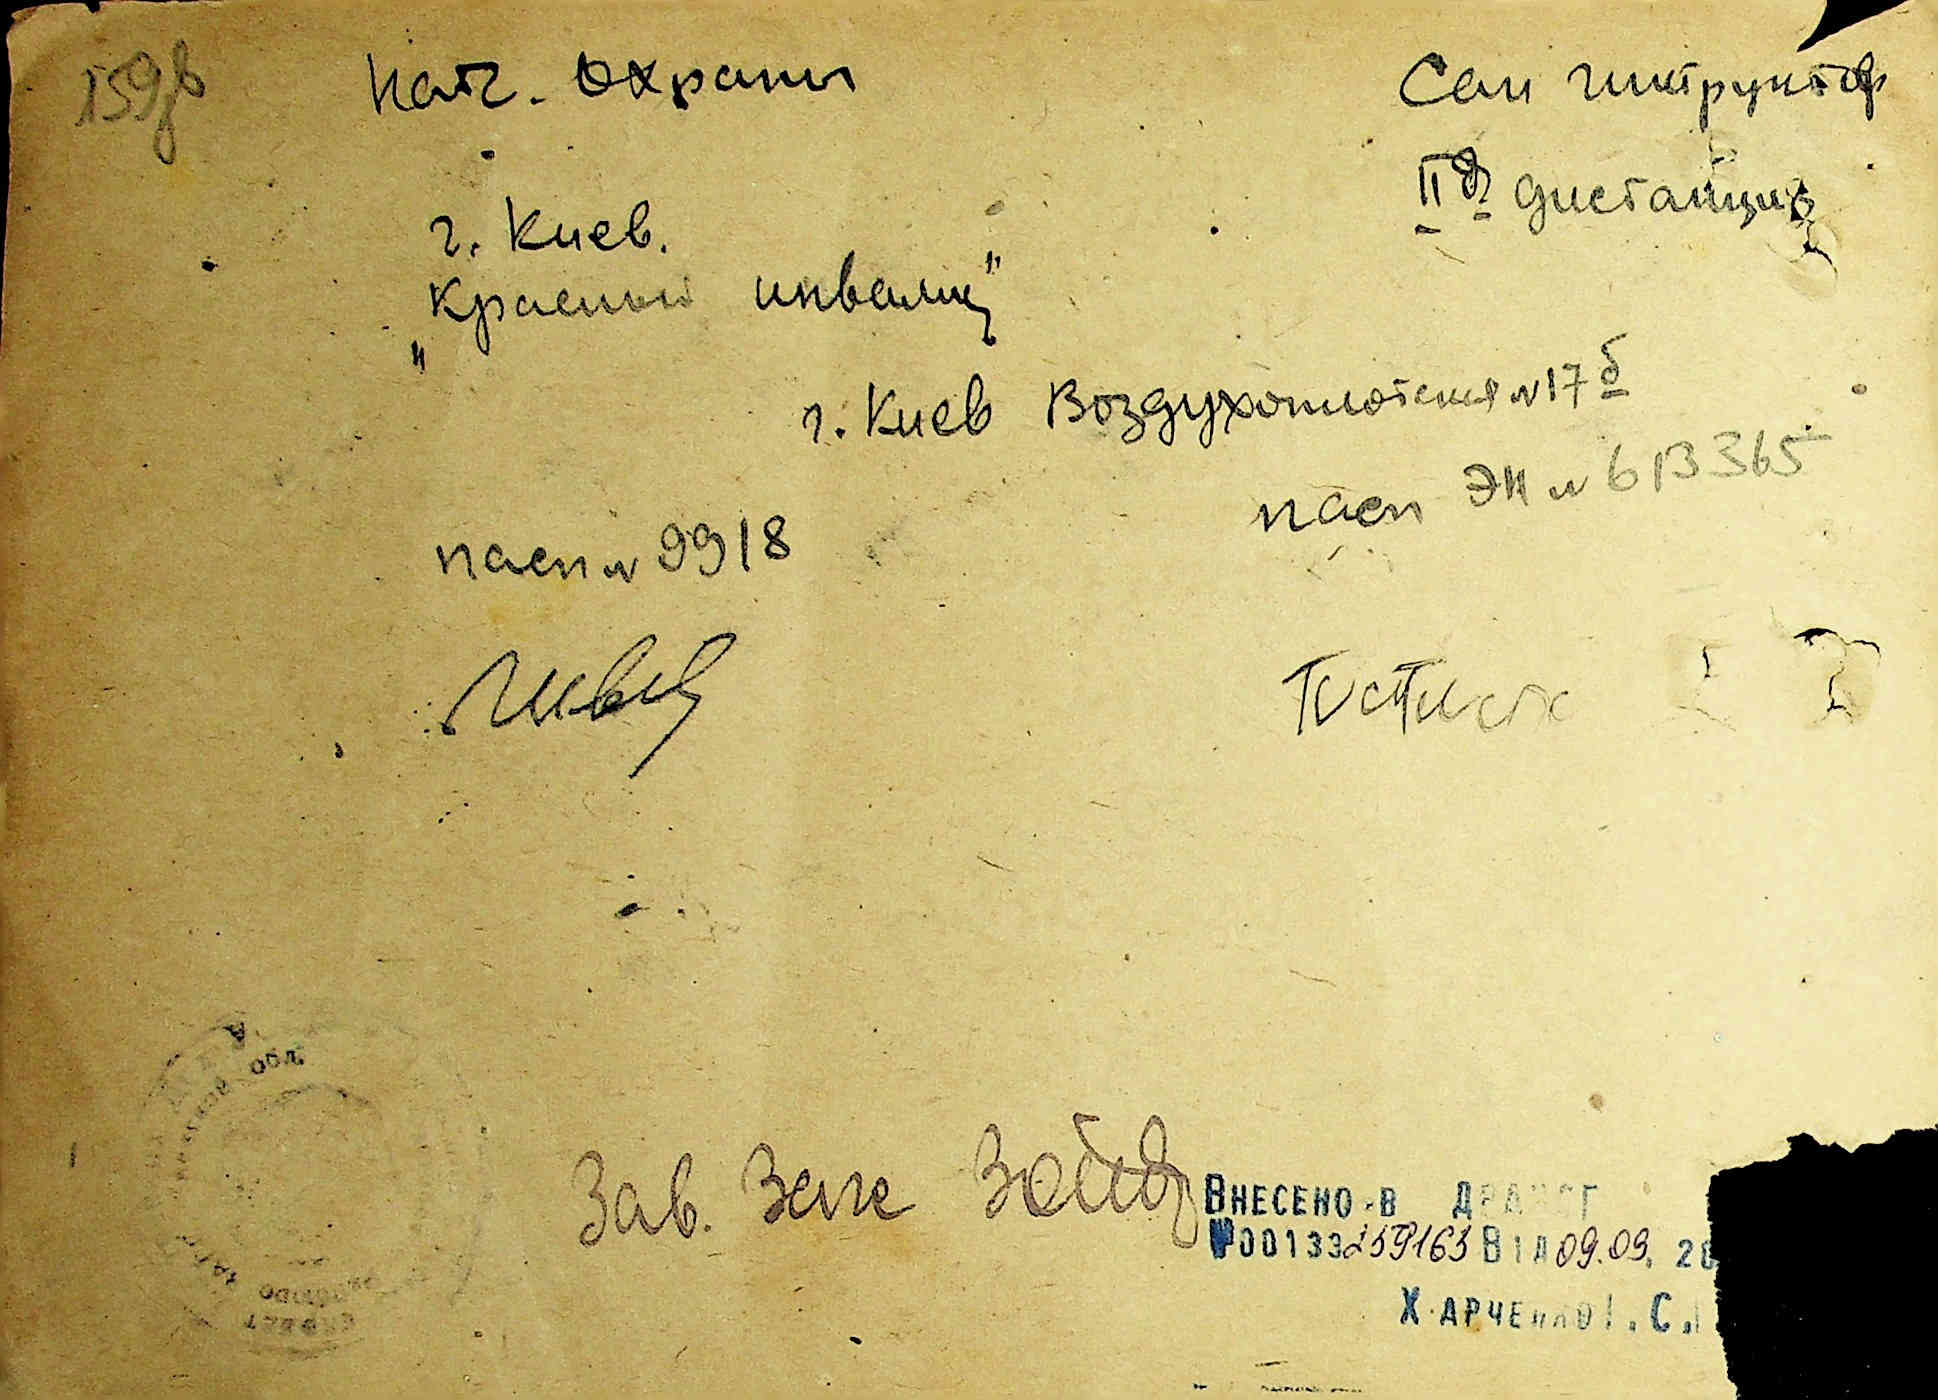 159
Нач. Охраны
Сан инструктор
II й дистанции
г. Киев.
"Красный инвалид"
г. Киев Воздухофлотская № 17 б
пасп ЭН № 613365
пасп № 9918
Швец
Зав. Загс
Внесено в ДРАЦСГ
№00133259163 Від 09.09. 20
Харченко І. С.